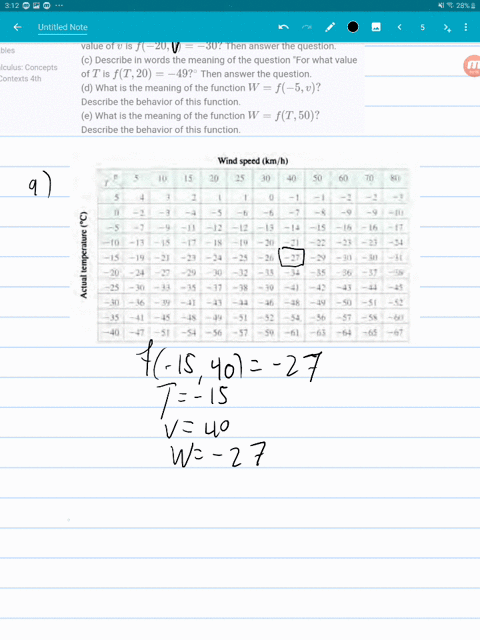 3:12
28%
Untitled Note
5
bles
value of v is f(−20, v) = −30? Then answer the question.
(c) Describe in words the meaning of the question "For what value
lculus: Concepts
of T is f(T, 20) = −49?" Then answer the question.
Contexts 4th
(d) What is the meaning of the function W = f(−5, v)?
Describe the behavior of this function.
(e) What is the meaning of the function W = f(T, 50)?
Describe the behavior of this function.
Wind speed (km/h)
a)
Actual temperature (°C)
T v 5 10 15 20 25 30 40 50 60 70 80
5 4 3 2 1 1 0 −1 −1 −2 −2 −3
0 −2 −3 −4 −5 −6 −6 −7 −8 −9 −9 −10
−5 −7 −9 −11 −12 −12 −13 −14 −15 −16 −16 −17
−10 −13 −15 −17 −18 −19 −20 −21 −22 −23 −23 −24
−15 −19 −21 −23 −24 −25 −26 −27 −29 −30 −30 −31
−20 −24 −27 −29 −30 −32 −33 −34 −35 −36 −37 −38
−25 −30 −33 −35 −37 −38 −39 −41 −42 −43 −44 −45
−30 −36 −39 −41 −43 −44 −46 −48 −49 −50 −51 −52
−35 −41 −45 −48 −49 −51 −52 −54 −56 −57 −58 −60
−40 −47 −51 −54 −56 −57 −59 −61 −63 −64 −65 −67
f(-15, 40) = -27
T = -15
V = 40
W = -27